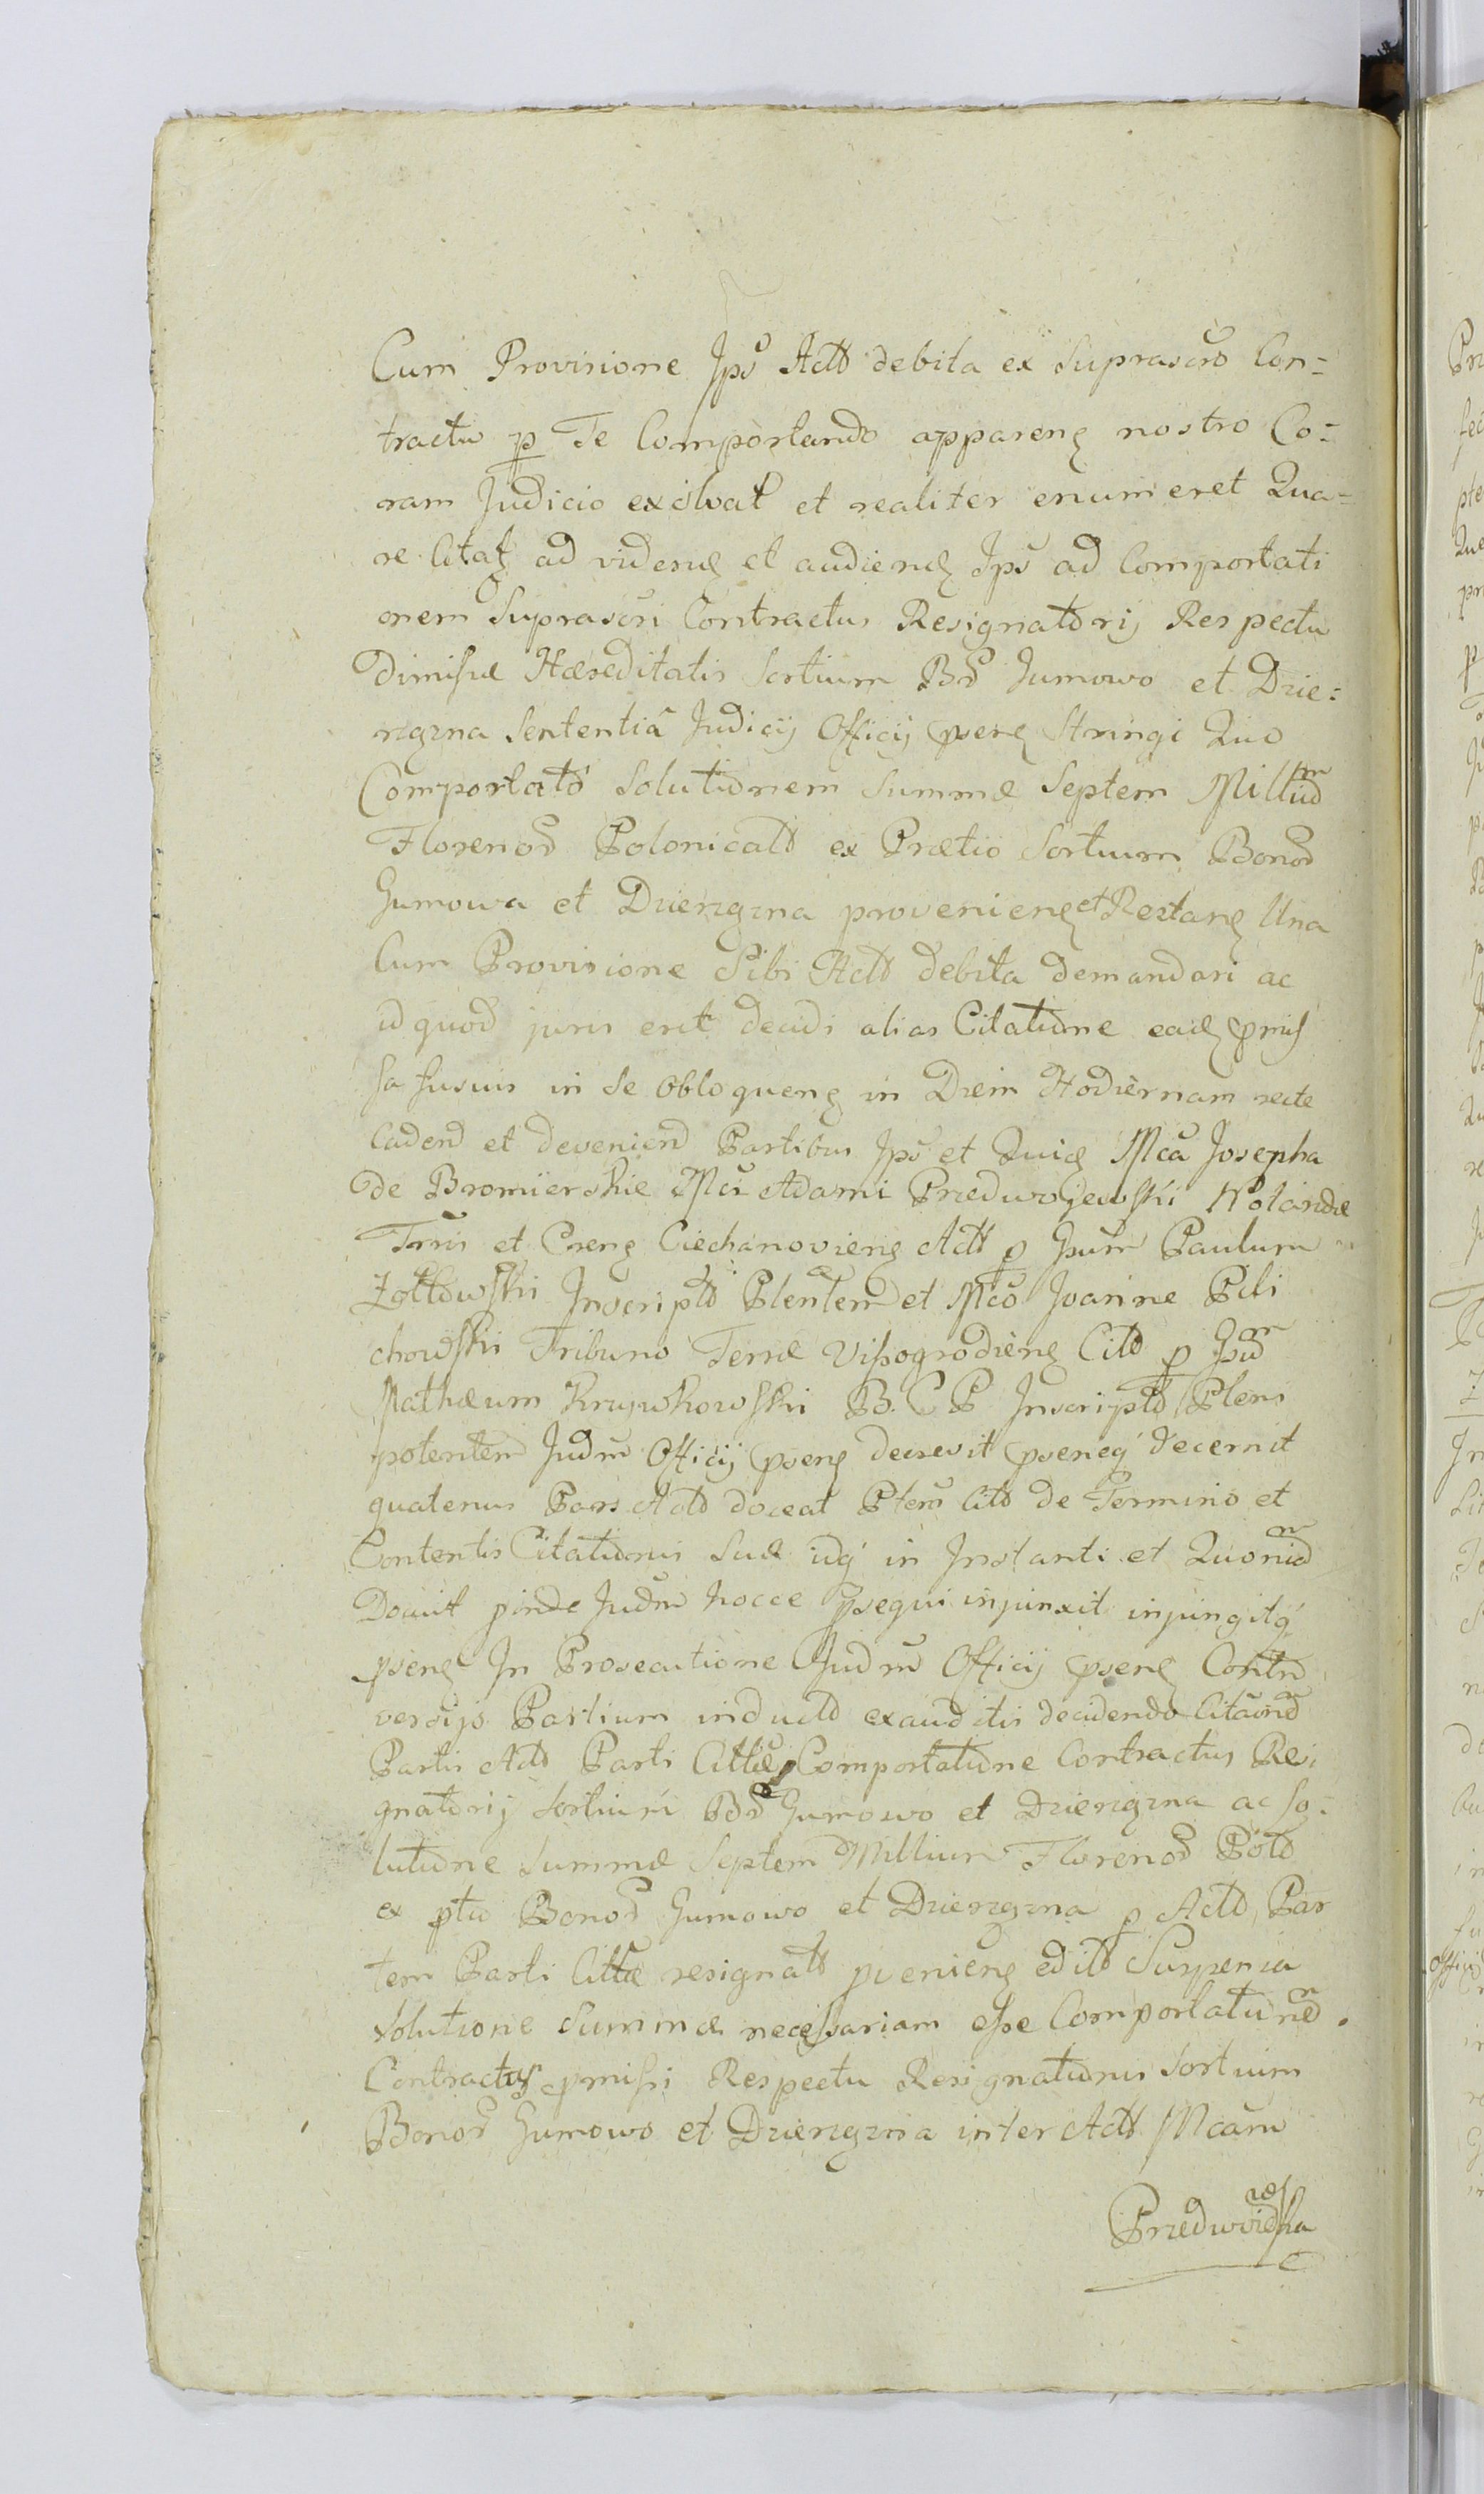 Cum Provisione Ipsi Act debita ex Suprascro Con=
tractu p Te Comportando appareng nostro Co=
ram Judicio exolvat et realiter enumeret Qua=
re Citat ad videnđ et audiend Ipsi ad Comportati
onem Suprascri Contractus Resignatorij Respectu
Dimissæ Hæreditatis Sortium Bđ Gumowo et Dzie=
rzgzna Sententiâ Judicij Officij pseng Stringi Quo
Comportato Solutionem Summæ Septem Milliũ
Florenoȓ Polonicalt ex Prætio Sortium Bonoȓ
Gumowa et Dzierzgzna provenieng et Restang Una
Cum Provisione Sibi Act debita demandari ac
id quod juris erit decidi alias Citatione eadem pmis
sa fusius in se Obloqueng in Diem Hodiernam recte
Caden et devenien Partibus Ipsi et Quidem Mca Josepha
de Bromierskie Mci Adami Przedwojewski Notariæ
Trris et Cseng Ciechanovieng Act p Gsum Paulum
Zołtowski Inscript Plentem et Mco Joanne Pili
chowski Tribuno Terræ Vissogrodieng Cito p Gsum
Mathæum Krzywkowski B. C P Inscript Pleni
potentem Judm Officij pseng decrevit psengq decernit
quatenus Pars Act doceat Ptem Cit de Termino et
Contentis Citationis Suæ idq in Instanti et Quoniã
Docuit pinde Judm hocce psequi injunxit injungitq
pseng In Prosecutione Judm Officij pseng Contro
versijs Partium induct exauditis decidendo Citaone
Partis Act Parti Cittæ Comportatione Contractus Resi
gnatorij Sortium Bđ Gumowo et Dzierzgzna ac So=
lutione Summæ Septem Millium Florenoȓ Polo
ex ptio Bonoȓ Gumowo et Dzierzgzna p Act Par
tem Parti Cittæ resignat pvenieng edit Suspensa
Solutione Summæ necessariam esse Comportationẽ
Contractus pmissi Respectu Resignationis Sortium
Bonoȓ Gumowo et Dzierzgzna inter Act Mcam
Przedwoiewska